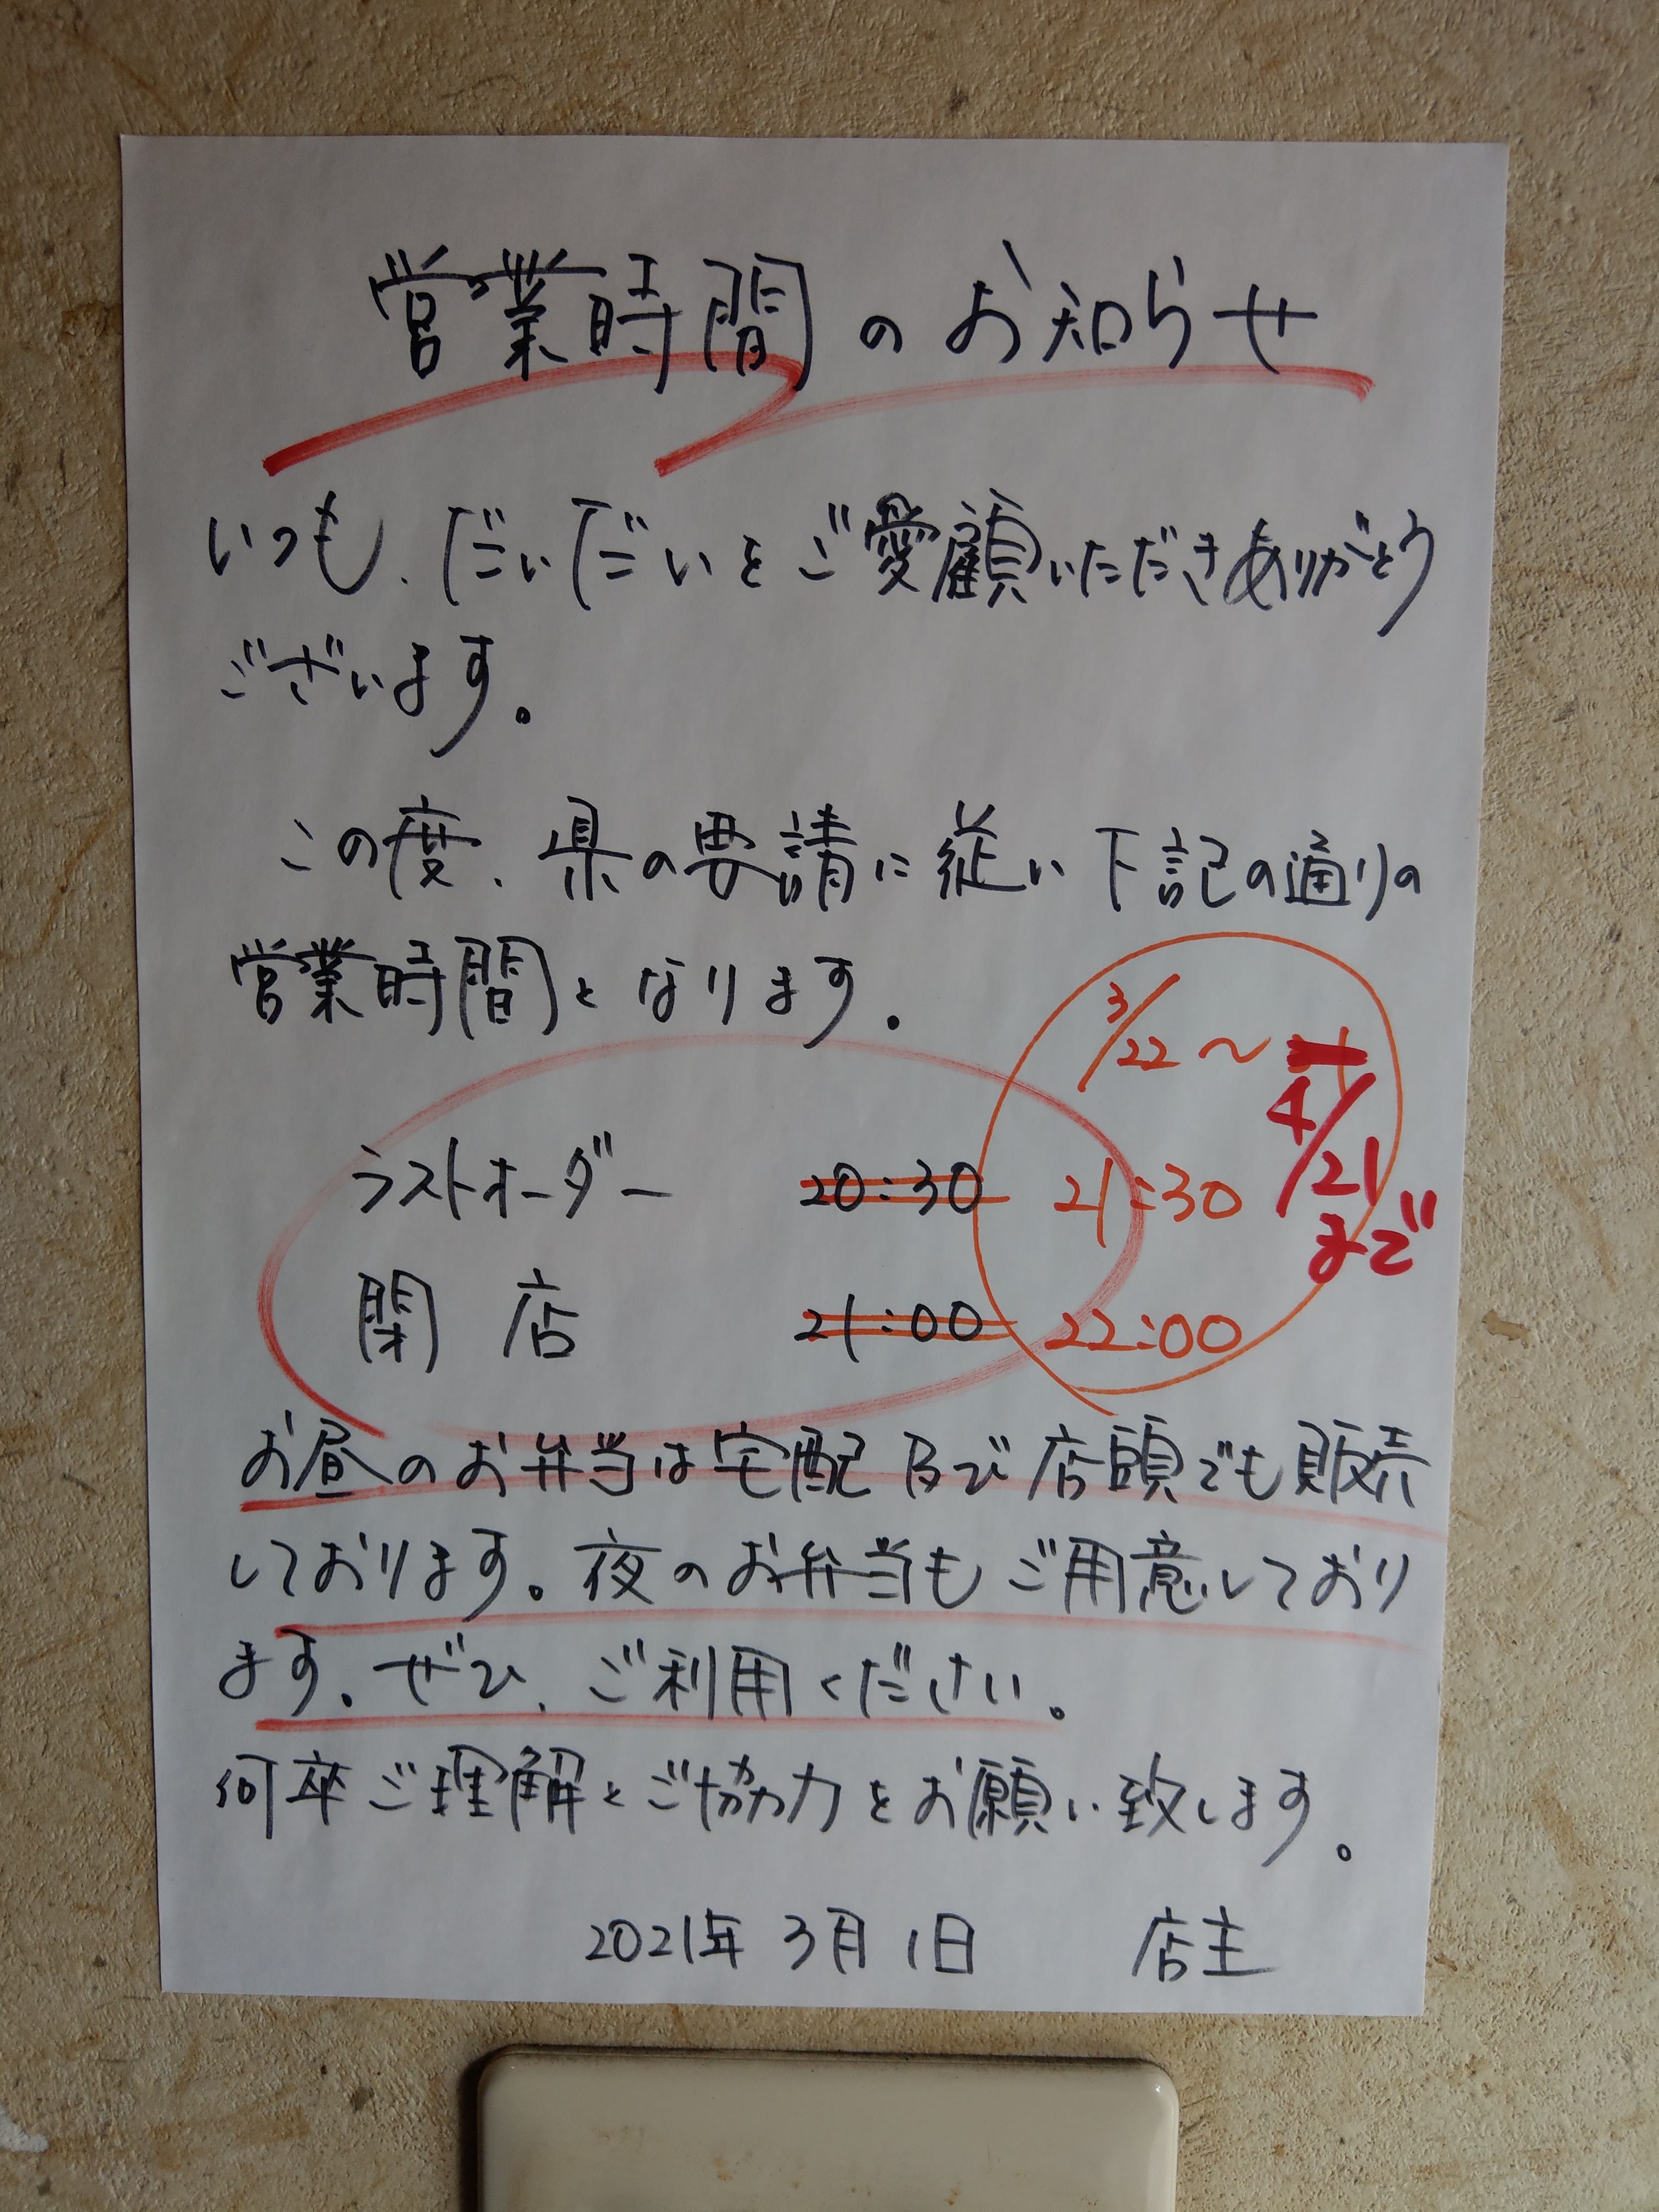 営業時間のお知らせ
いつも、だいだいをご愛顧いただきありがとう
ございます。
この度、県の要請に従い下記の通りの
営業時間となります。
3/22〜
4/21
まで
ラストオーダー 20:30 21:30
閉店 21:00 22:00
お昼のお弁当は宅配及び店頭でも販売
しております。夜のお弁当もご用意しており
ます。ぜひ、ご利用ください。
何卒ご理解とご協力をお願い致します。
2021年3月1日 店主